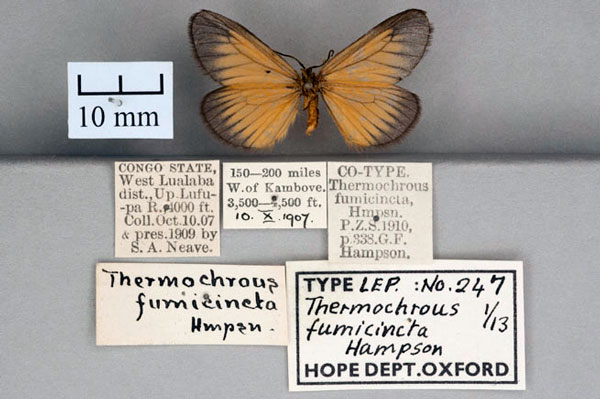 10 mm
CONGO STATE,
West Lualaba
dist., Up. Lufu-
pa R. 4000 ft.
Coll. Oct. 10.07
& pres. 1909 by
S. A. Neave.
150—200 miles
W. of Kambove.
3,500—4,500 ft.
10. X. 1907.
CO-TYPE.
Thermochrous
fumicincta,
Hmpsn.
P.Z.S. 1910,
p. 338. G.F.
Hampson.
Thermochrous
fumicincta
Hmpsn.
TYPE LEP. : No. 247
Thermochrous 1/13
fumicincta
Hampson
HOPE DEPT. OXFORD